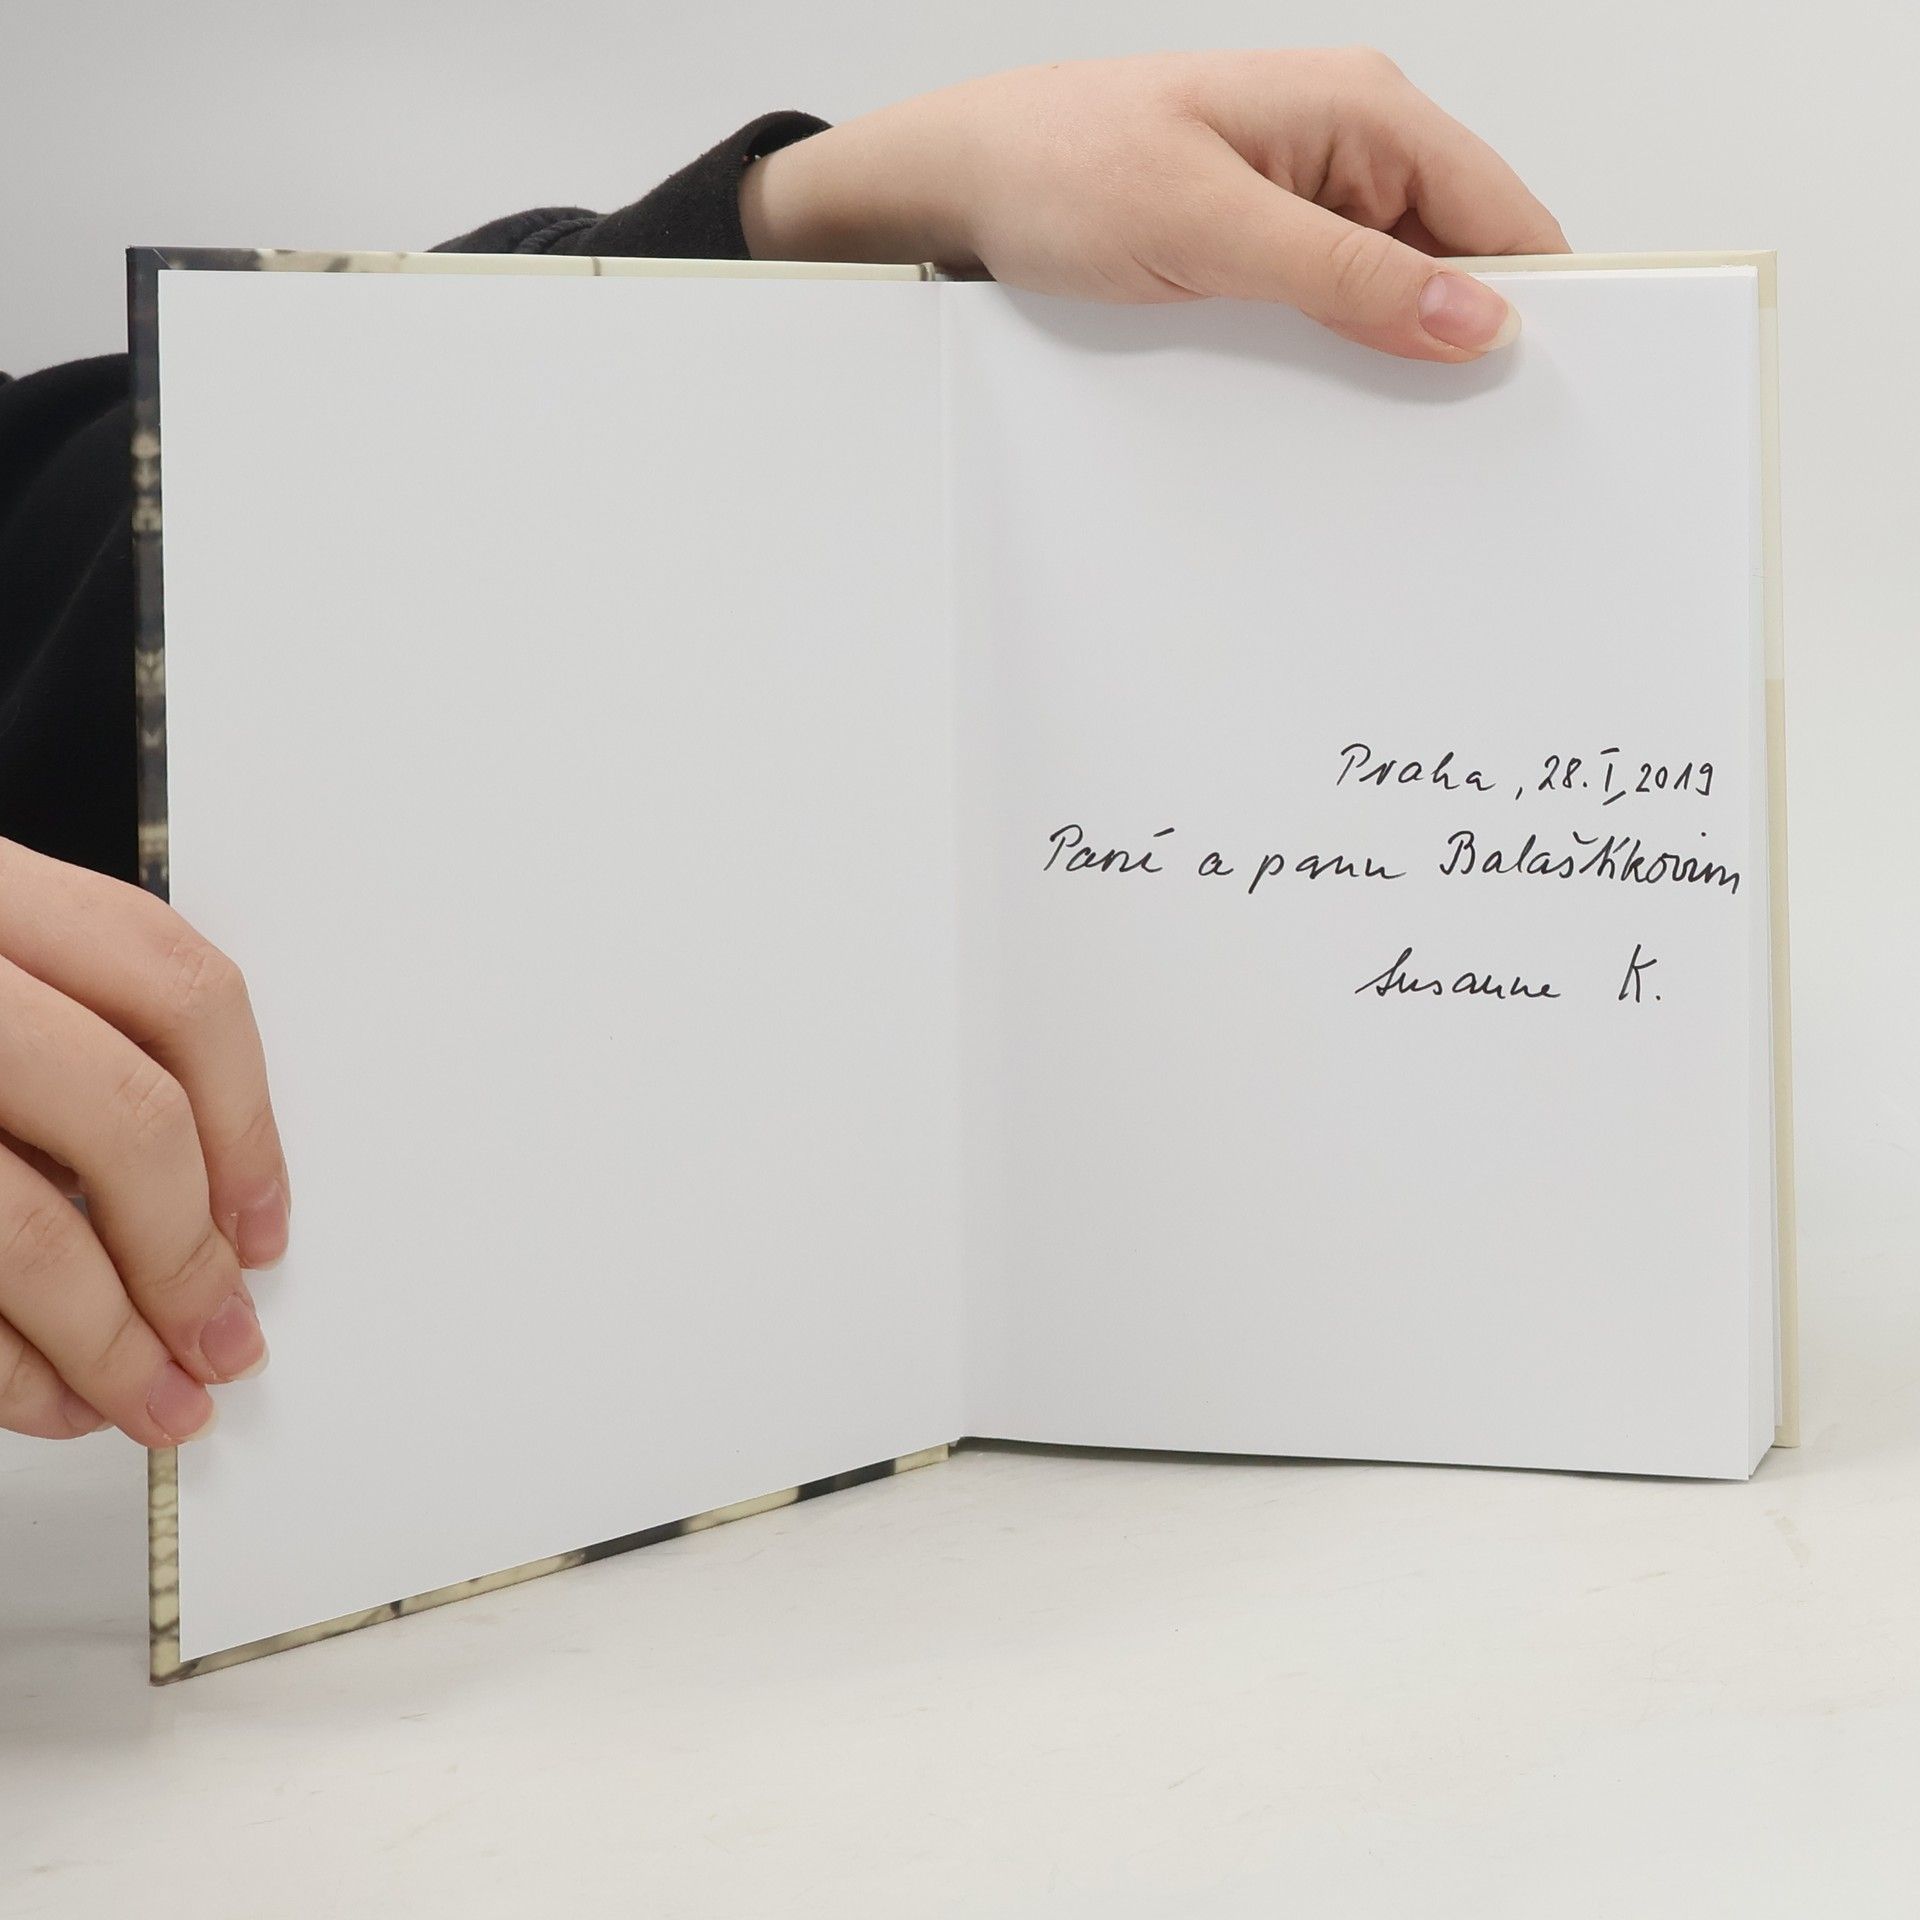 Praha, 28. I, 2019
Paní a panu Balaštíkovim
Susanne K.